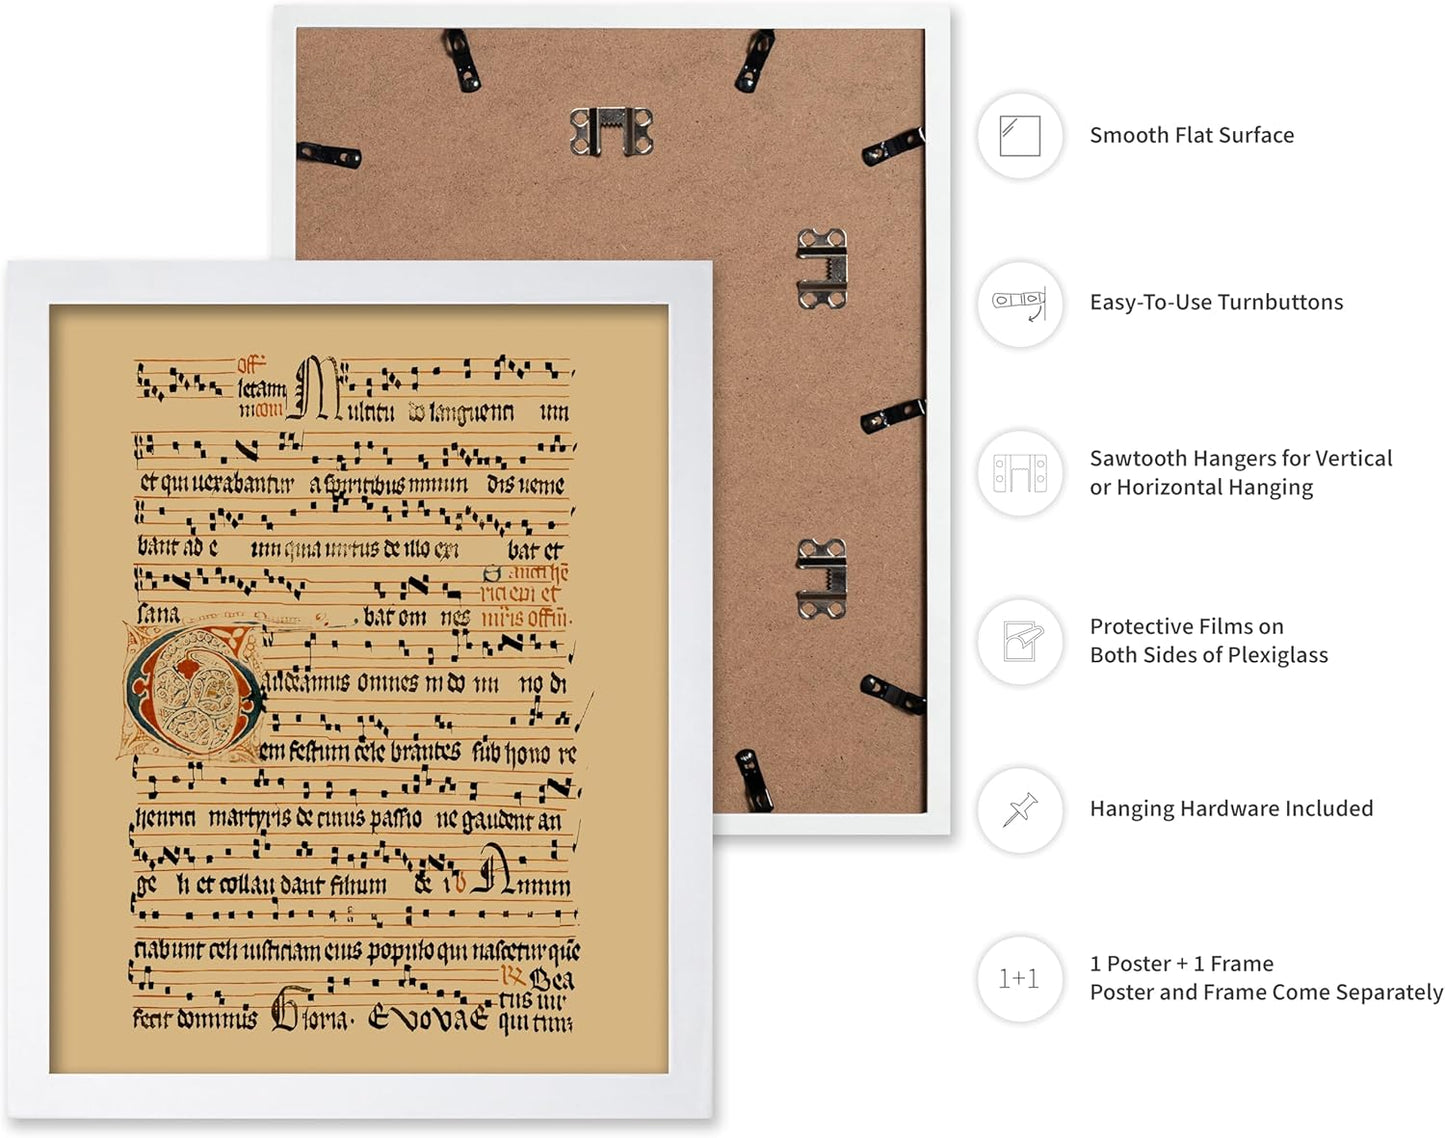 off
letam
mcom
Multitu do languenti um
et qui uexabantur a spiritibus inmun dis uenie
bant ad e um quia uirtus de illo exi bat et
Sancti hē
rici epi et
sana bat om nes
mr̄is offm̄.
Gaudeamus omnes in do mi no di
em festum cele brantes sub hono re
henrici martyris de cuius passio ne gaudent an
ge li et collau dant filium de i Annun
ciabunt celi iusticiam eius populo qui nascetur quē
Bea
tus uir
fecit dominus Gloria. EVOVAE qui tim
Smooth Flat Surface
Easy-To-Use Turnbuttons
Sawtooth Hangers for Vertical
or Horizontal Hanging
Protective Films on
Both Sides of Plexiglass
Hanging Hardware Included
1+1
1 Poster + 1 Frame
Poster and Frame Come Separately